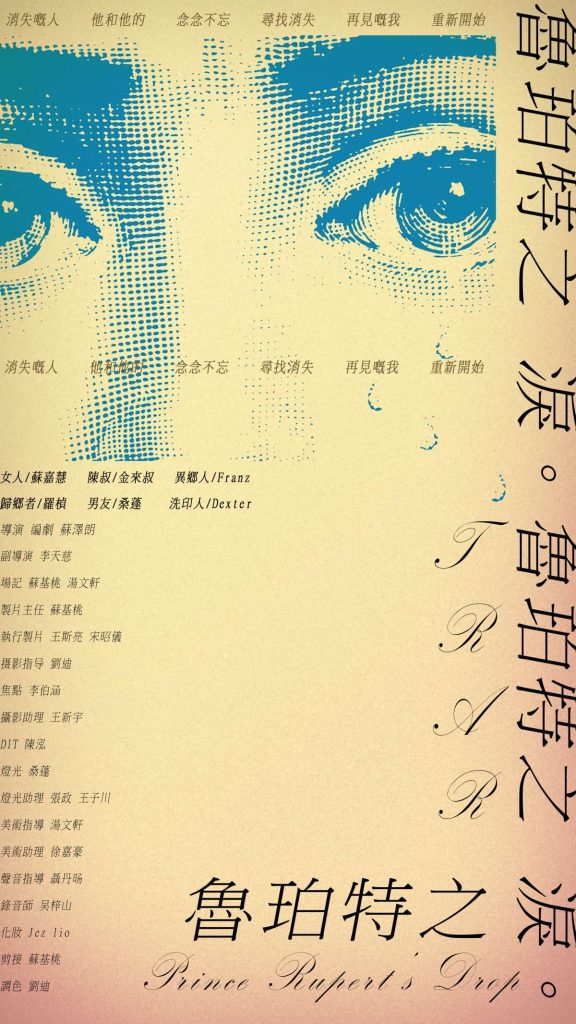 消失嘅人 他和他的 念念不忘 尋找消失 再見嘅我 重新開始
消失嘅人 他和他的 念念不忘 尋找消失 再見嘅我 重新開始
魯珀特之 淚。魯珀特之 淚。
女人/蘇嘉慧 陳叔/金來叔 異鄉人/Franz
歸鄉者/羅楨 男友/桑蓬 洗印人/Dexter
導演 編劇 蘇澤朗
副導演 李天慈
場記 蘇基桃 湯文軒
製片主任 蘇基桃
執行製片 王斯亮 宋昭儀
摄影指导 劉迪
焦點 李伯涵
攝影助理 王新宇
DIT 陳泓
燈光 桑蓬
燈光助理 張政 王子川
美術指導 湯文軒
美術助理 徐嘉豪
聲音指導 聶丹旸
錄音師 吴梓山
化妝 Jez lio
剪接 蘇基桃
調色 劉迪
T
R
A
R
魯珀特之
Prince Rupert's Drop